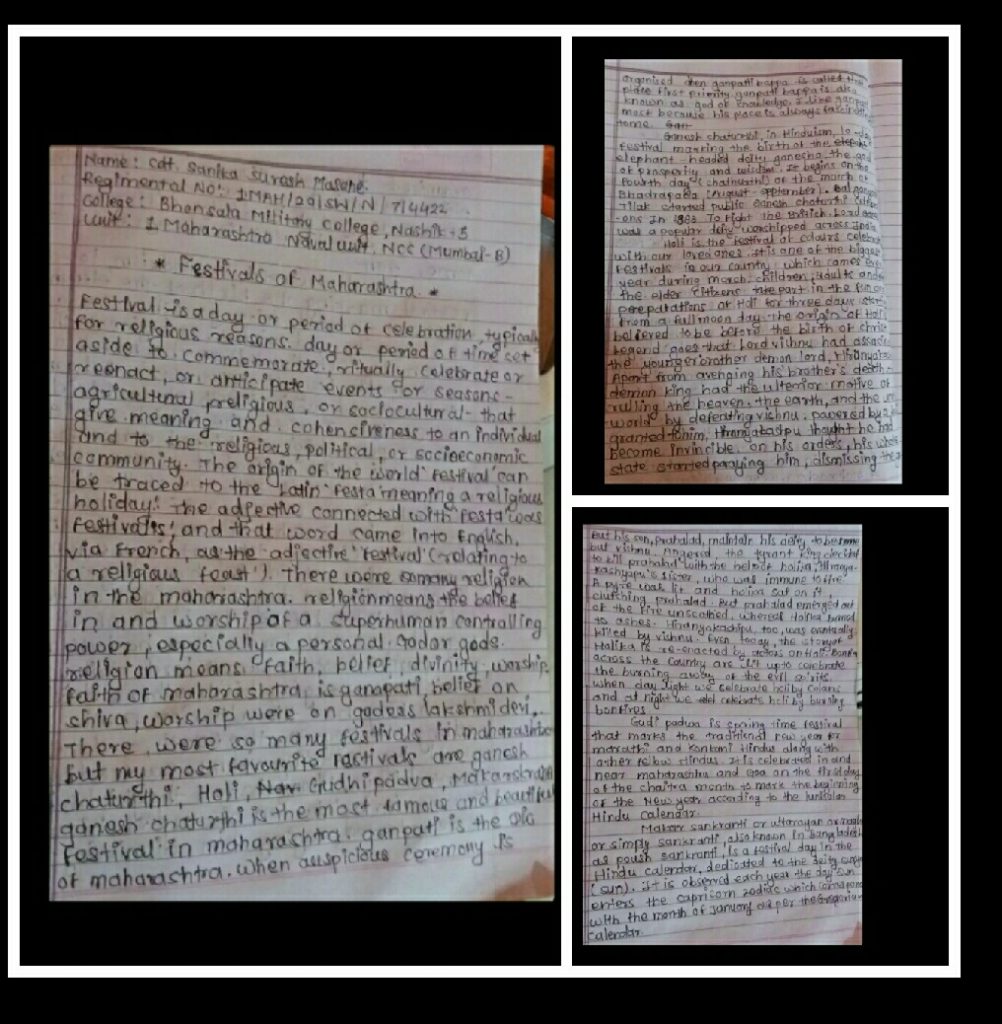 Name: Cdt. Sanika Suresh
Regimental No: 1MAH/20/SW/N/714422
College: Bhonsala Military College, Nashik-5
Unit: 1 Maharashtra Naval unit, NCC (Mumbai-B)
* Festivals of Maharashtra. *
Festival is a day or period of celebration, typically
for religious reasons. day or period of time set
aside to commemorate, ritually celebrate or
reenact, or anticipate events or seasons -
agricultural, religious, or sociocultural - that
give meaning and cohensireness to an individual
and to the religious, political, or socioeconomic
community. The origin of the world 'festival' can
be traced to the Latin 'festa' meaning a religious
holiday. The adjective connected with 'festa' was
and that word came into English,
via French, as the adjective 'festival' (relating to
a religious feast'). There were somany religion
in the maharashtra. religion means the belief
in and worship of a superhuman controlling
power, especially a personal god or gods.
religion means faith, belief, divinity, worship.
faith of maharashtra is ganapati, belief on
shiva, worship were on lakshmi devi,.
There were so many festivals in maharashtra
but my most favourite festivals are ganesh
chaturthi, Holi, Gudhi padva,
ganesh chaturthi is the most famous and beautiful
festival in maharashtra. ganpati is the
of maharashtra. when auspicious ceremony is
organised then ganpati bappa is called
place first priority. ganpati bappa is also
known as god of knowledge. I like
most because his face is always
tome.
Ganesh chaturthi, in Hinduism,
festival marking the birth of the
elephant-headed deity ganesha, the god
of prosperity and wisdom. It begins on the
fourth day (chaturthi) of the month of
Bhadrapada (August-September).
Tilak started public Ganesh chaturthi
-ons In To fight the British. Lord
was a popular deity worshipped across India
Holi is the festival of colours
with our loved ones. It is one of the
festivals in our country, which comes
year during march. children, adults and
the elder citizens take part in the fun
of Holi for three days
from a fullmoon day. The origin of Holi
believed to be before the birth of
Legend goes that Lord vishnu had
the younger brother demon lord,
Apart from avenging his brother's death
demon king had the ulterior motive of
rulling the heaven, the earth, and the
world by defeating vishnu. powered by
granted to him, thought he had
become invincible. on his orders, his
state started praying him, dismissing
But his son, prahalad,
but vishnu. Angered, the tyrant king decided
to kill prahalad with the help of holika,
sister, who was immune to fire.
A pyre was lit and holika sat on it,
clutching prahalad. But prahalad emerged out
of the fire unscathed, whereas Holika turned
to ashes. too, was eventually
killed by vishnu. Even today, the story of
Holika is re-enacted by actors on Holi.
across the country are lit up to
the burning away of the evil spirits.
when day light we celebrate holi by colours
and at night we celebrate holi by burning
bonfires.
Gudi padwa is spring time festival
that marks the traditional new year for
marathi and Konkani Hindus along with
other Hindus. It is celebrated in and
near maharashtra and Goa on the first day
of the chaitra month to mark the beginning
of the New year according to the
Hindu calendar.
Makar sankranti or uttarayan or
or simply sankranti, also known in Bangladesh
as poush sankranti, is a festival day in the
Hindu calendar, dedicated to the deity
(sun). It is observed each year the day sun
enters the capricorn zodiac which
with the month of January as per the Gregorian
calendar.